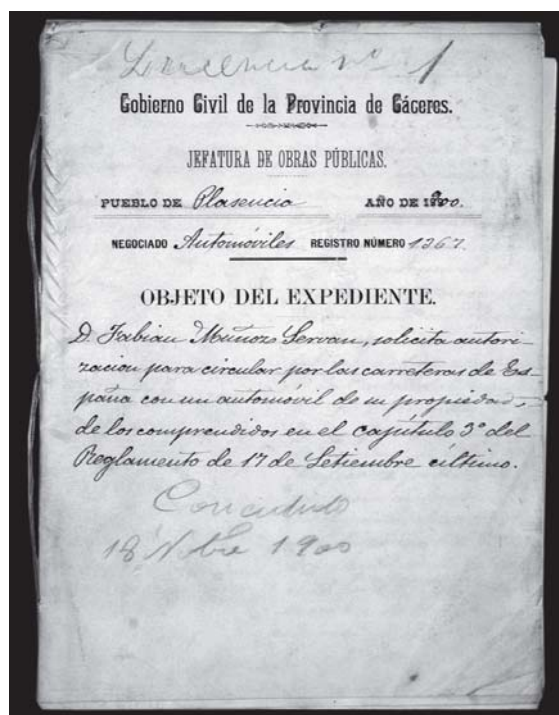 Licencia nº 1
Gobierno Civil de la Provincia de Cáceres.
JEFATURA DE OBRAS PÚBLICAS.
PUEBLO DE Plasencia AÑO DE 1900.
NEGOCIADO Automóviles REGISTRO NÚMERO 1367.
OBJETO DEL EXPEDIENTE.
D. Fabian Muñozo Servan, solicita autori-
zacion para circular por las carreteras de Es-
paña con un automóvil de su propiedad
de los comprendidos en el capítulo 3º del
Reglamento de 17 de Setiembre último.
Concedido
18 Nbre 1900